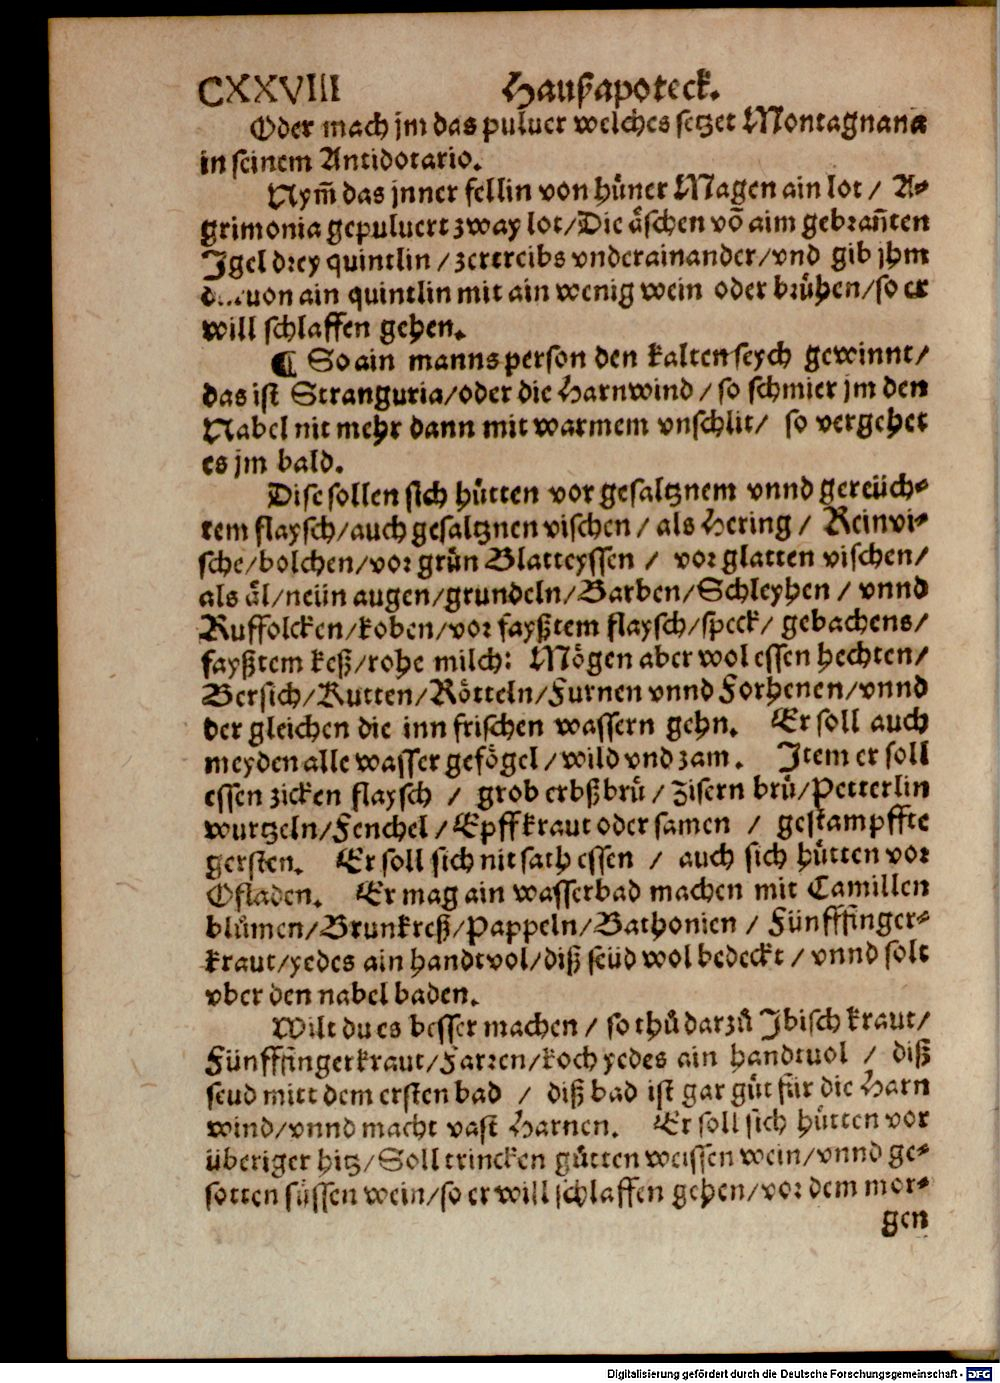 CXXVIII Haußapoteck.
Oder mach jm das puluer welches setzet Montagnana
in seinem Antidotario.
Nym̃ das jnner fellin von hůner Magen ain lot / A-
grimonia gepuluert zway lot / Die äschen võ aim gebrañten
Igel drey quintlin / zertreibs vnderainander / vnd gib jhm
ain quintlin mit ain wenig wein oder brůhen / so er
will schlaffen gehen.
¶ So ain manns person den kalten seych gewinnt /
das ist Stranguria / oder die Harnwind / so schmier jm den
Nabel nit mehr dann mit warmem vnschlit / so vergehet
es jm bald.
Dise sollen sich hůtten vor gesaltznem vnnd gereüch-
tem flaysch / auch gesaltznen vischen / als Hering / Reinvi-
sche / bolchen / vor grůn Blatteyssen / vor glatten vischen /
als äl / neün augen / grundeln / Barben / Schleyhen / vnnd
Ruffolcken / koben / vor fayßtem flaysch / speck / gebachens /
fayßtem keß / rohe milch: Mögen aber wol essen hechten /
Bersich / Rutten / Rötteln / Furnen vnnd Forhenen / vnnd
der gleichen die inn frischen wassern gehn. Er soll auch
meyden alle wasser gefögel / wild vnd zam. Item er soll
essen zicken flaysch / grob erbßbrů / Zisern brů / Petterlin
wurtzeln / Fenchel / Epffkraut oder samen / gestampffte
gersten. Er soll sich nit sath essen / auch sich hůtten vor
Ofladen. Er mag ain wasserbad machen mit Camillen
blůmen / Brunkreß / Pappeln / Bathonien / Fünfffinger-
kraut / yedes ain handtvol / diß seüd wol bedeckt / vnnd solt
vber den nabel baden.
Wilt du es besser machen / so thů darzů Ibisch kraut /
Fünfffingerkraut / Farren / koch yedes ain handtuol / diß
seud mitt dem ersten bad / diß bad ist gar gůt für die Harn
wind / vnnd macht vast Harnen. Er soll sich hůtten vor
überiger hitz / Soll trincken gůtten weissen wein / vnnd ge-
sotten sůssen wein / so er will schlaffen gehen / vor dem mor-
gen
Digitalisierung gefördert durch die Deutsche Forschungsgemeinschaft - DFG